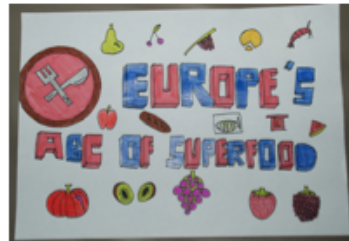 EUROPE'S
ABC OF SUPERFOOD